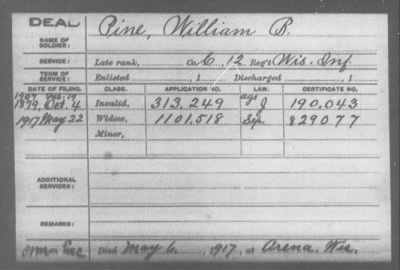 DEAD
NAME OF SOLDIER: Pine, William B.
SERVICE: Late rank, Co. C, 12 Reg't Wis. Inf.
TERM OF SERVICE: Enlisted , 1 Discharged , 1
DATE OF FILING. CLASS. APPLICATION NO. LAW. CERTIFICATE NO.
1907 Feb. 19 age
1879, Oct. 4 Invalid, 313,249 J 190,043
1917 May 22 Widow, 1101,518 Sep. 829077
Minor,
ADDITIONAL SERVICES:
REMARKS:
Died May 6, 1917, at Arena, Wis.